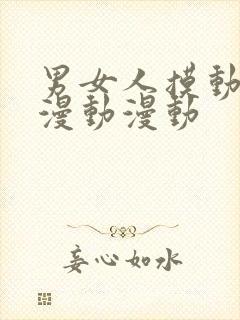 男女人摸動
漫動漫動
妾心如水